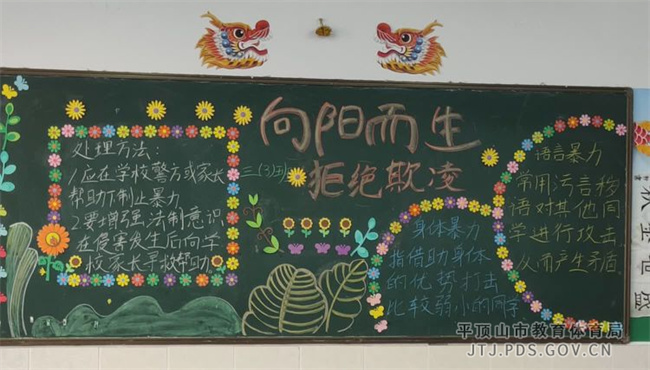 向阳而生
拒绝欺凌
三(3)班
处理方法:
1应在学校警方或家长
帮助下制止暴力
2要增强法制意识
在侵害发生后向学
校家长寻救帮助
身体暴力
指借助身体
的优势打击
比较弱小的同学
语言暴力
常用污言秽
语对其他同
学进行攻击
从而产生矛盾
平顶山市教育体育局
JTJ.PDS.GOV.CN